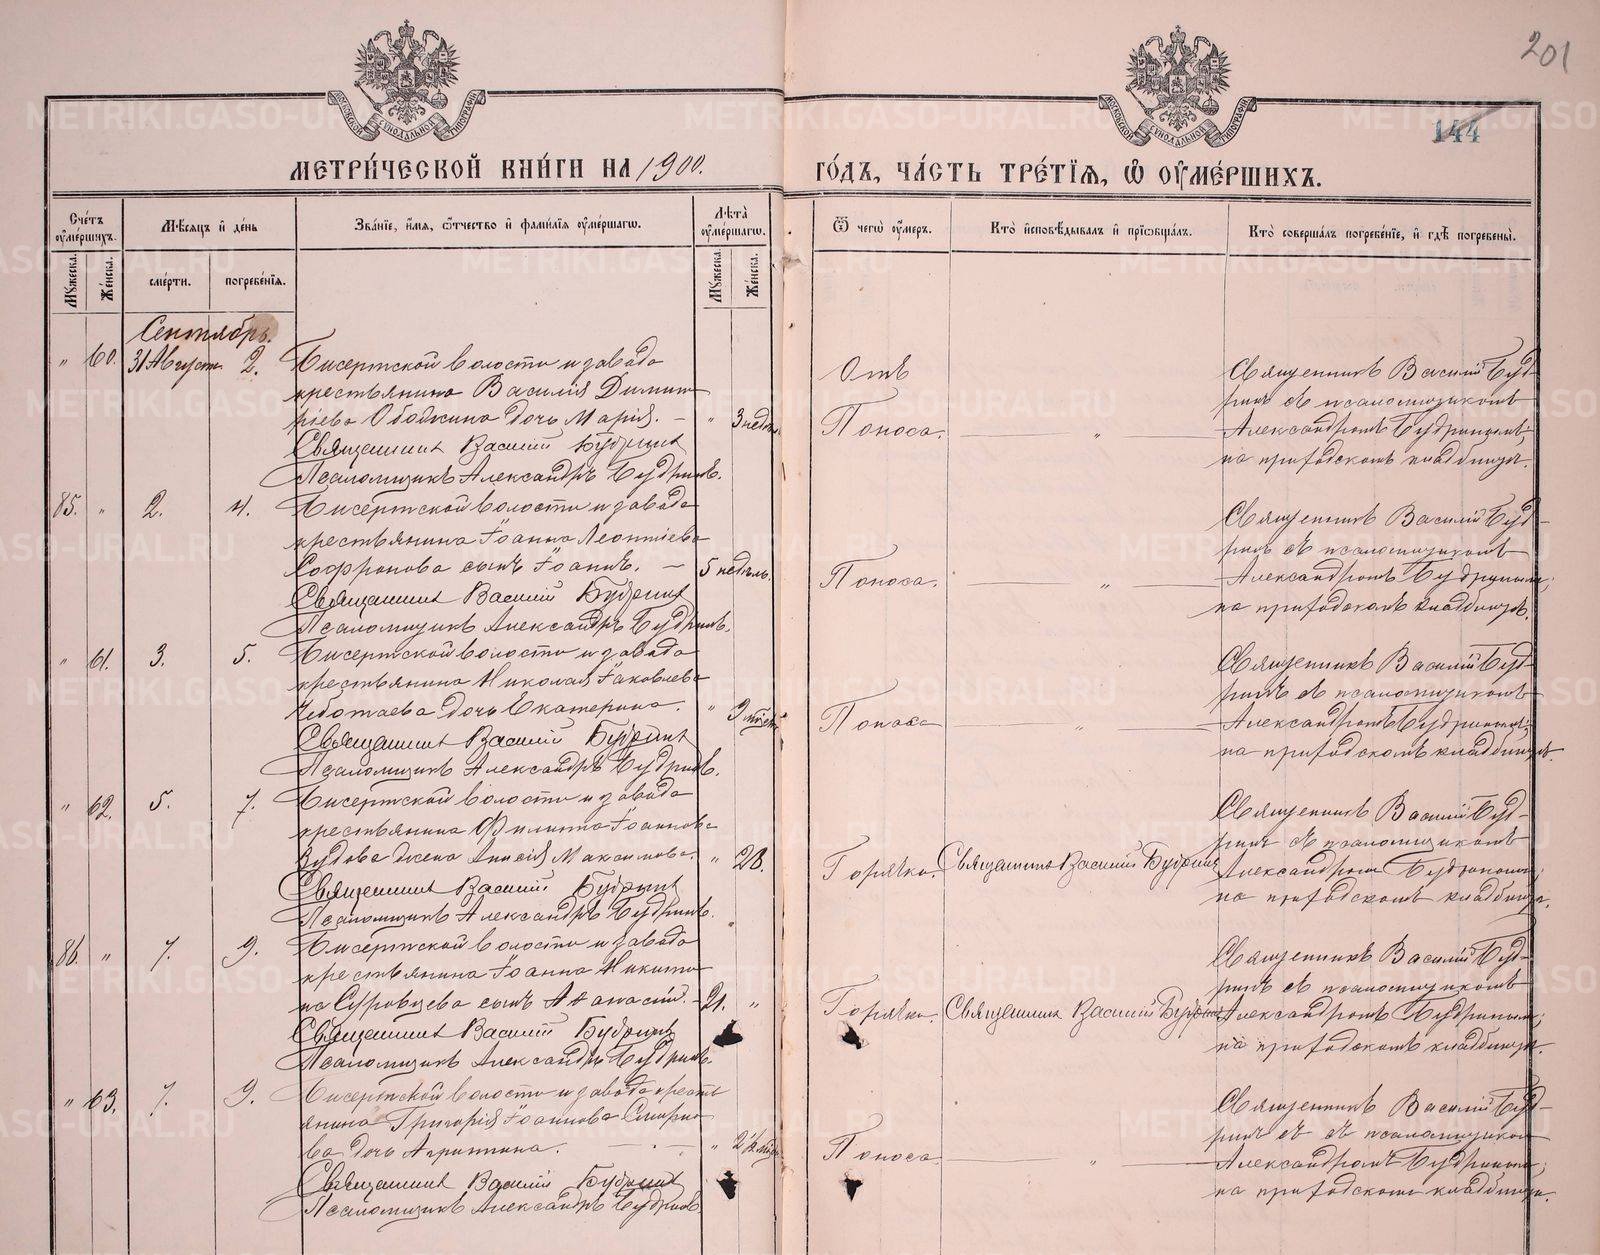 201
144
МЕТРИ́ЧЕСКОЙ КНИ́ГИ НА 1900.
ГО́ДЪ, ЧА́СТЬ ТРЕ́ТІЯ, Ѽ ОУМЕ́РШИХЪ.
Сче́тъ оумершихъ.
Мѣсяцъ и день
Зва́ніе, имя, о́тчество и фами́лія оуме́ршагѡ.
Лѣта оуме́ршагѡ.
Ѿ чегѡ̀ оу́меръ.
Кто̀ исповѣдывалъ и пріѡбщалъ.
Кто̀ соверша́лъ погребе́ніе, и гдѣ̀ погребены̀.
Мужеска.
Же́нска.
сме́рти.
погребе́нія.
Мужеска.
Же́нска.
Сентябрь.
" 60. 31 Август. 2. Бисертской волости и завода
крестьянина Василія Димит
ріева Ободкина дочь Марія. — " 3 недѣл.
Священникъ Василій Будринъ
Псаломщикъ Александръ Будринъ.
Отъ
Поноса. "
Священникъ Василій Буд-
ринъ съ псаломщикомъ
Александромъ Будринымъ;
на приходскомъ кладбищѣ.
85. " 2. 4. Бисертской волости и завода
крестьянина Іоанна Леонтіева
Софронова сынъ Іоаннъ. — 5 недѣль.
Священникъ Василій Будринъ
Псаломщикъ Александръ Будринъ.
Поноса. "
Священникъ Василій Буд-
ринъ съ псаломщикомъ
Александромъ Будринымъ;
на приходскомъ кладбищѣ.
" 61. 3. 5. Бисертской волости и завода
крестьянина Николая Іаковлева
Чеботаева дочь Екатерина. " 9 мѣсяц.
Священникъ Василій Будринъ
Псаломщикъ Александръ Будринъ.
Поноса "
Священникъ Василій Буд-
ринъ съ псаломщикомъ
Александромъ Будринымъ;
на приходскомъ кладбищѣ.
" 62. 5. 7. Бисертской волости и завода
крестьянина Филиппа Іоаннова
жена Анисія Максимова. " 28.
Священникъ Василій Будринъ
Псаломщикъ Александръ Будринъ.
Горячка. Священникъ Василій Будринъ
Священникъ Василій Буд-
ринъ съ псаломщикомъ
Александромъ Будринымъ;
на приходскомъ кладбищѣ.
86. " 7. 9. Бисертской волости и завода
крестьянина Іоанна Никити
на Суровцева сынъ Аѳанасій. — 21. "
Священникъ Василій Будринъ
Псаломщикъ Александръ Будринъ.
Горячка. Священникъ Василій Будринъ
Священникъ Василій Буд-
ринъ съ псаломщикомъ
Александромъ Будринымъ;
на приходскомъ кладбищѣ.
" 63. 7. 9. Бисертской волости и завода кресть
янина Григорія Іоаннова Смирно
ва дочь Агриппина. "
Священникъ Василій Будринъ
Псаломщикъ Александръ Будринъ.
Поноса. "
Священникъ Василій Буд-
ринъ съ съ псаломщикомъ
Александромъ Будринымъ;
на приходскомъ кладбищѣ.
METRIKI.GASO-URAL.RU